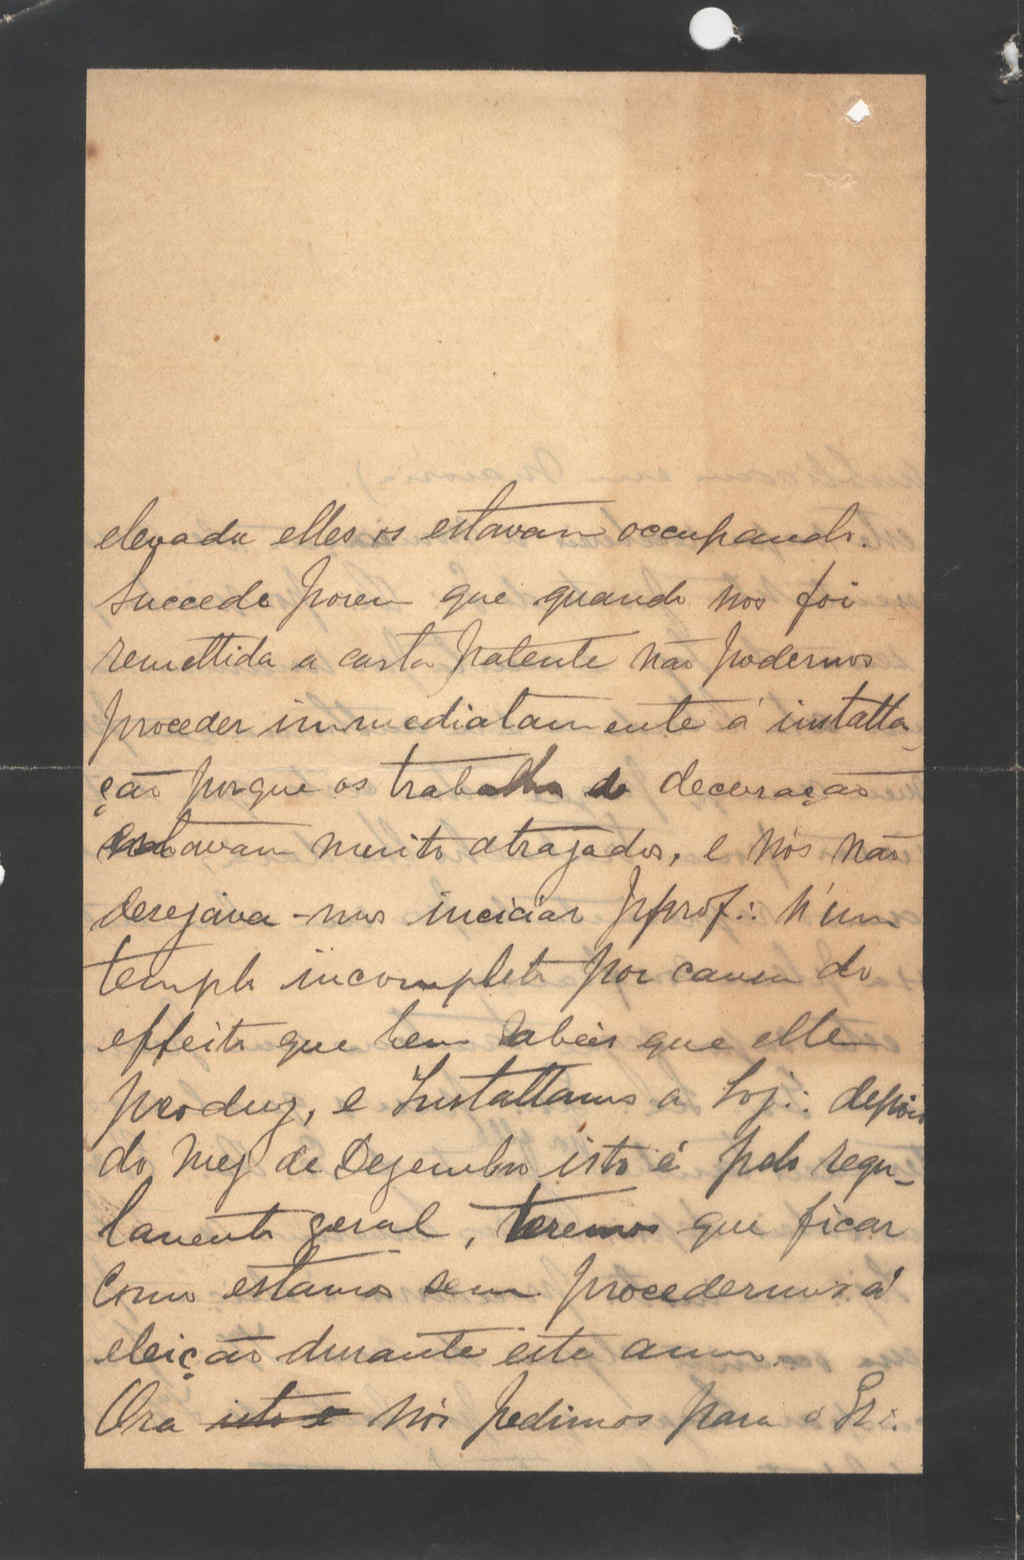 elevada elles os estavam occupando.
Succede porem que quando nos foi
remettida a carta patente não podermos
proceder immediatamente á installa_
ção porque os trabalhos de decoração
estavam muito atrazados, e nós não
desejava-mos iniciar pprof∴ n'um
templo incompleto por causa do
effeito que bem sabeis que elle
produz, e Installamos a Loj∴ depois
do mez de Dezembro isto é pelo regu_
lamento geral, teremos que ficar
como estamos sem procedermos á
eleição durante este anno.
Ora isto e nós pedimos para o Gr∴